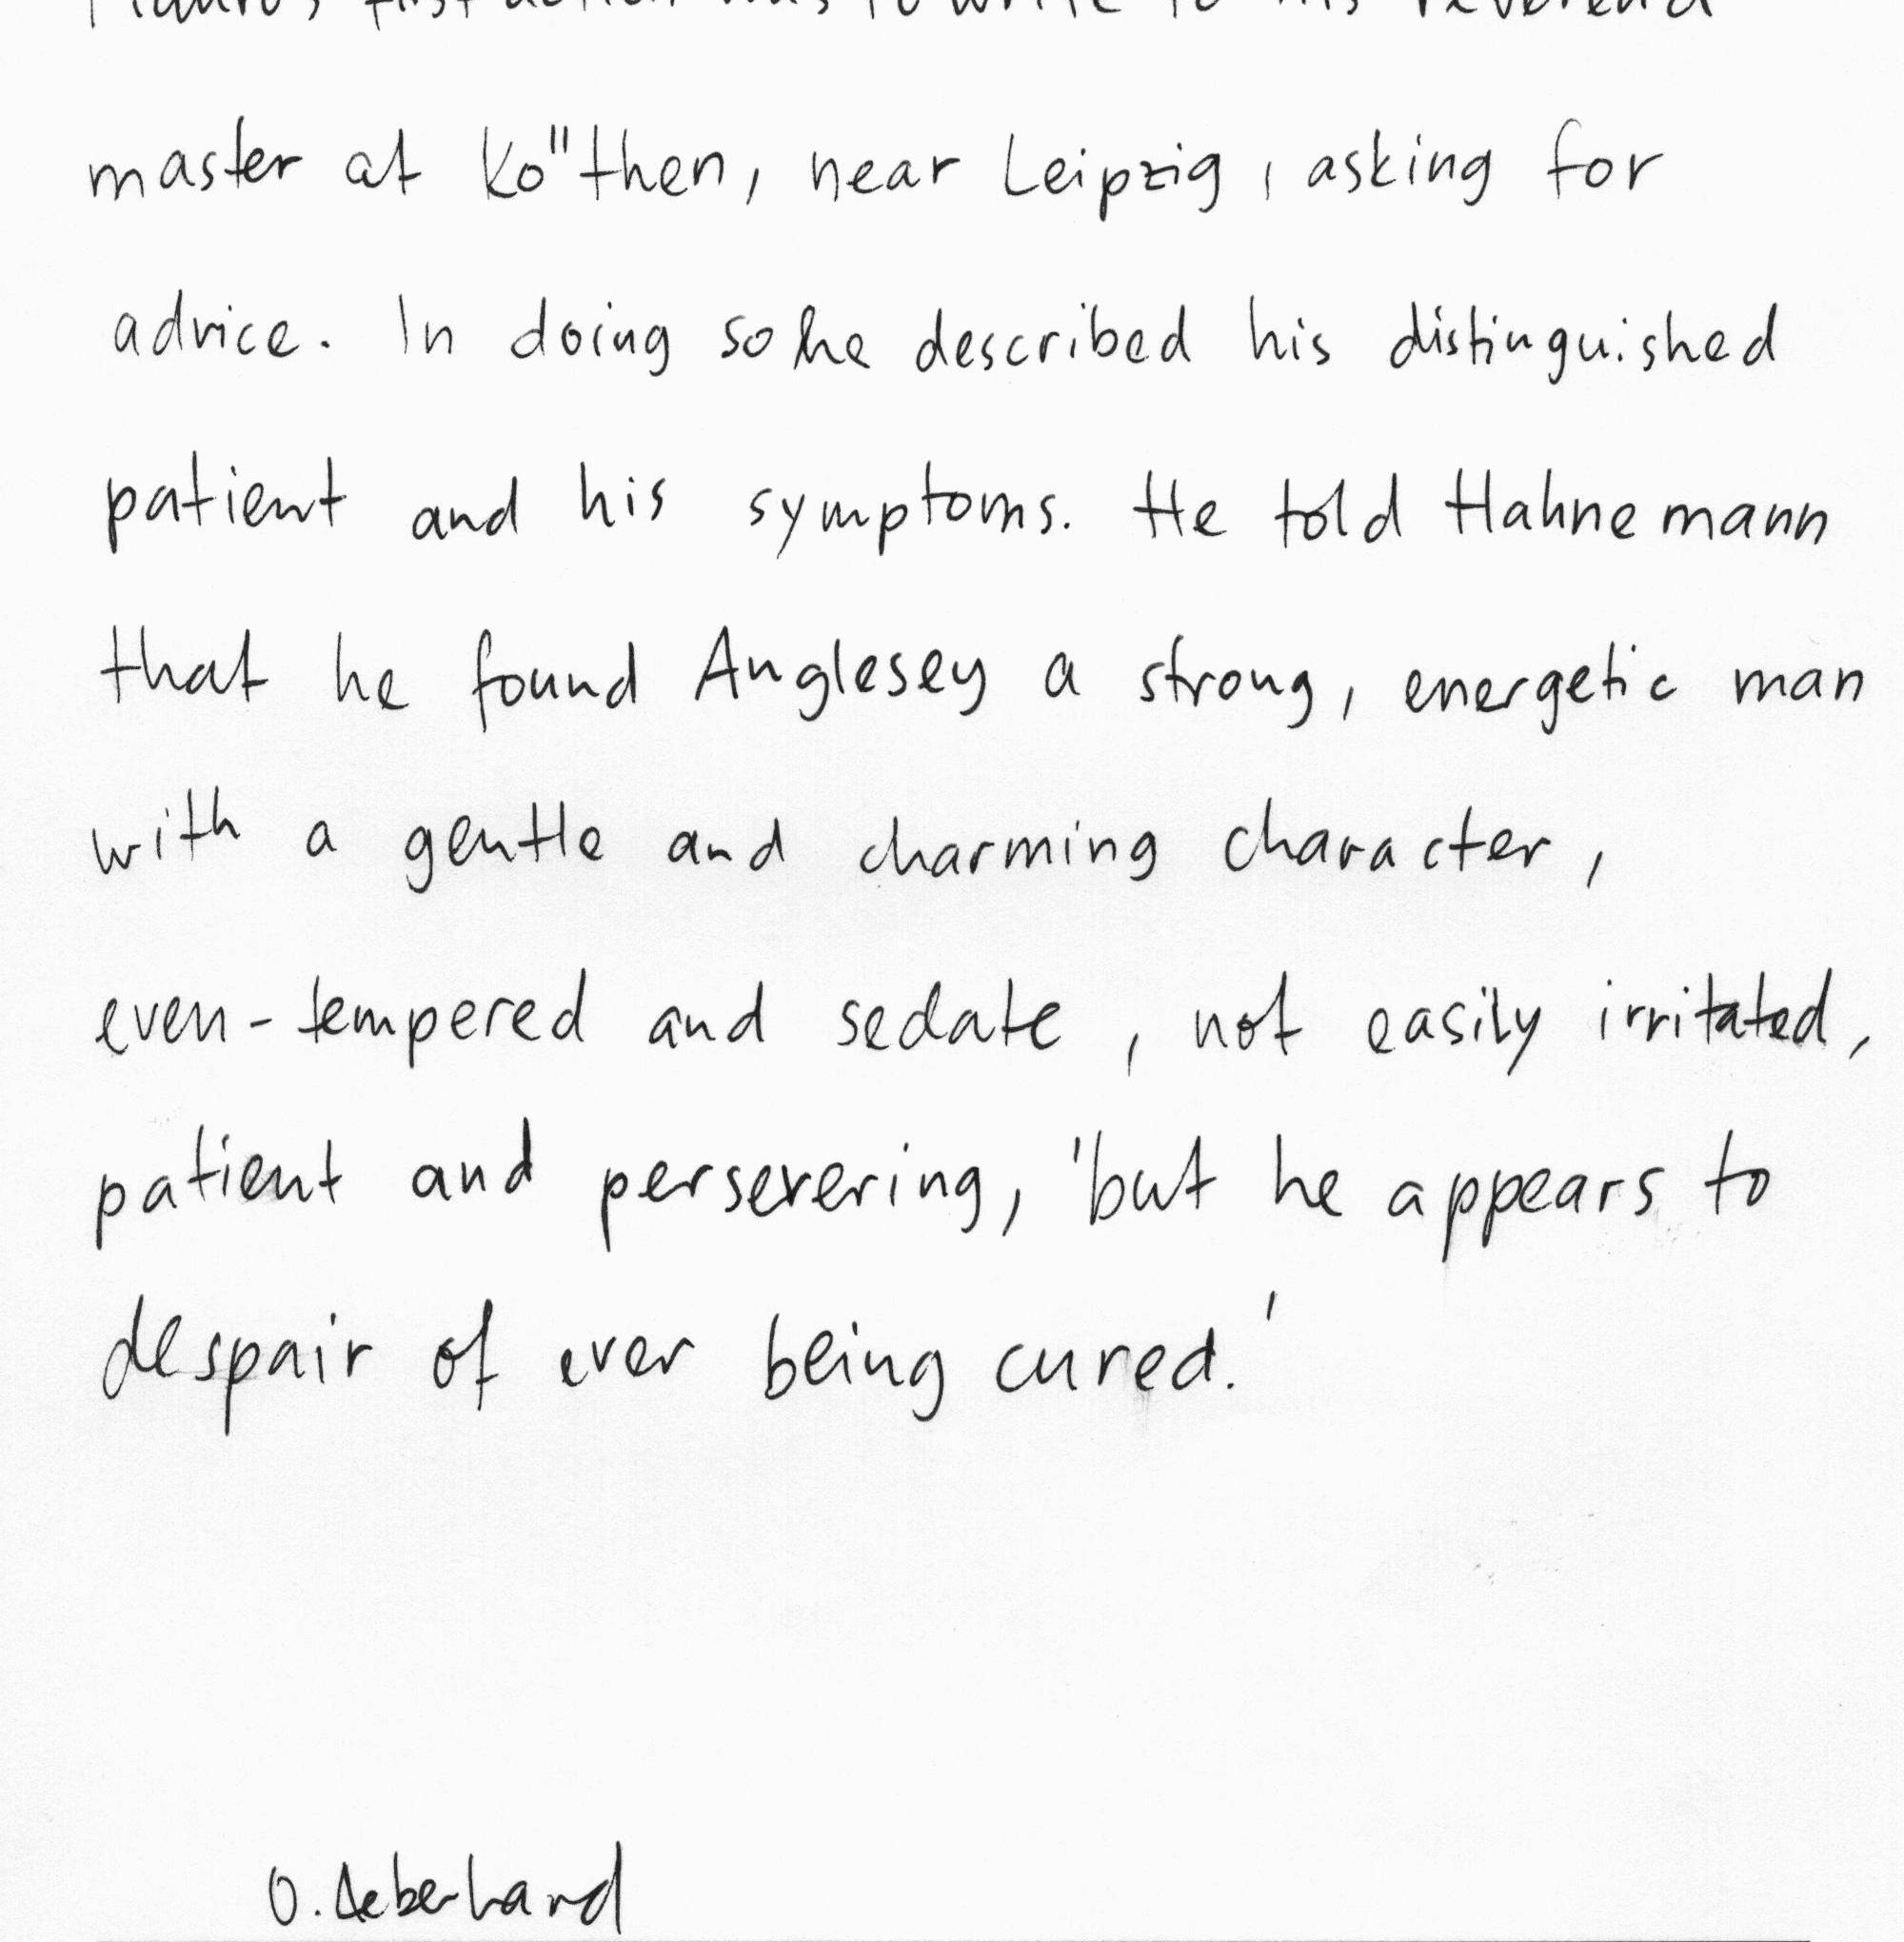 first action was to write to his reverend
master at Ko"then, near Leipzig, asking for
advice. In doing so he described his distinguished
patient and his symptoms. He told Hahnemann
that he found Anglesey a strong, energetic man
with a gentle and charming character,
even-tempered and sedate, not easily irritated,
patient and persevering, 'but he appears to
despair of ever being cured.'
O. Aeberhard